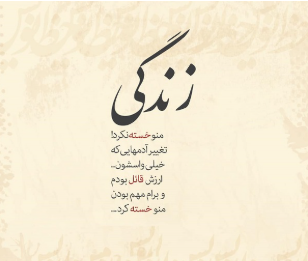 زندگی
منو خسته نکرد!
تغییر آدمهایی که
خیلی واسشون...
ارزش قائل بودم
و برام مهم بودن
منو خسته کرد...